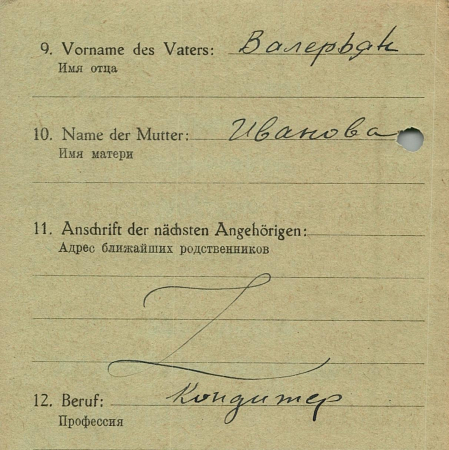 9. Vorname des Vaters: Валерьян
Имя отца
10. Name der Mutter: Иванова
Имя матери
11. Anschrift der nächsten Angehörigen:
Адрес ближайших родственников
12. Beruf: Кондитер
Профессия